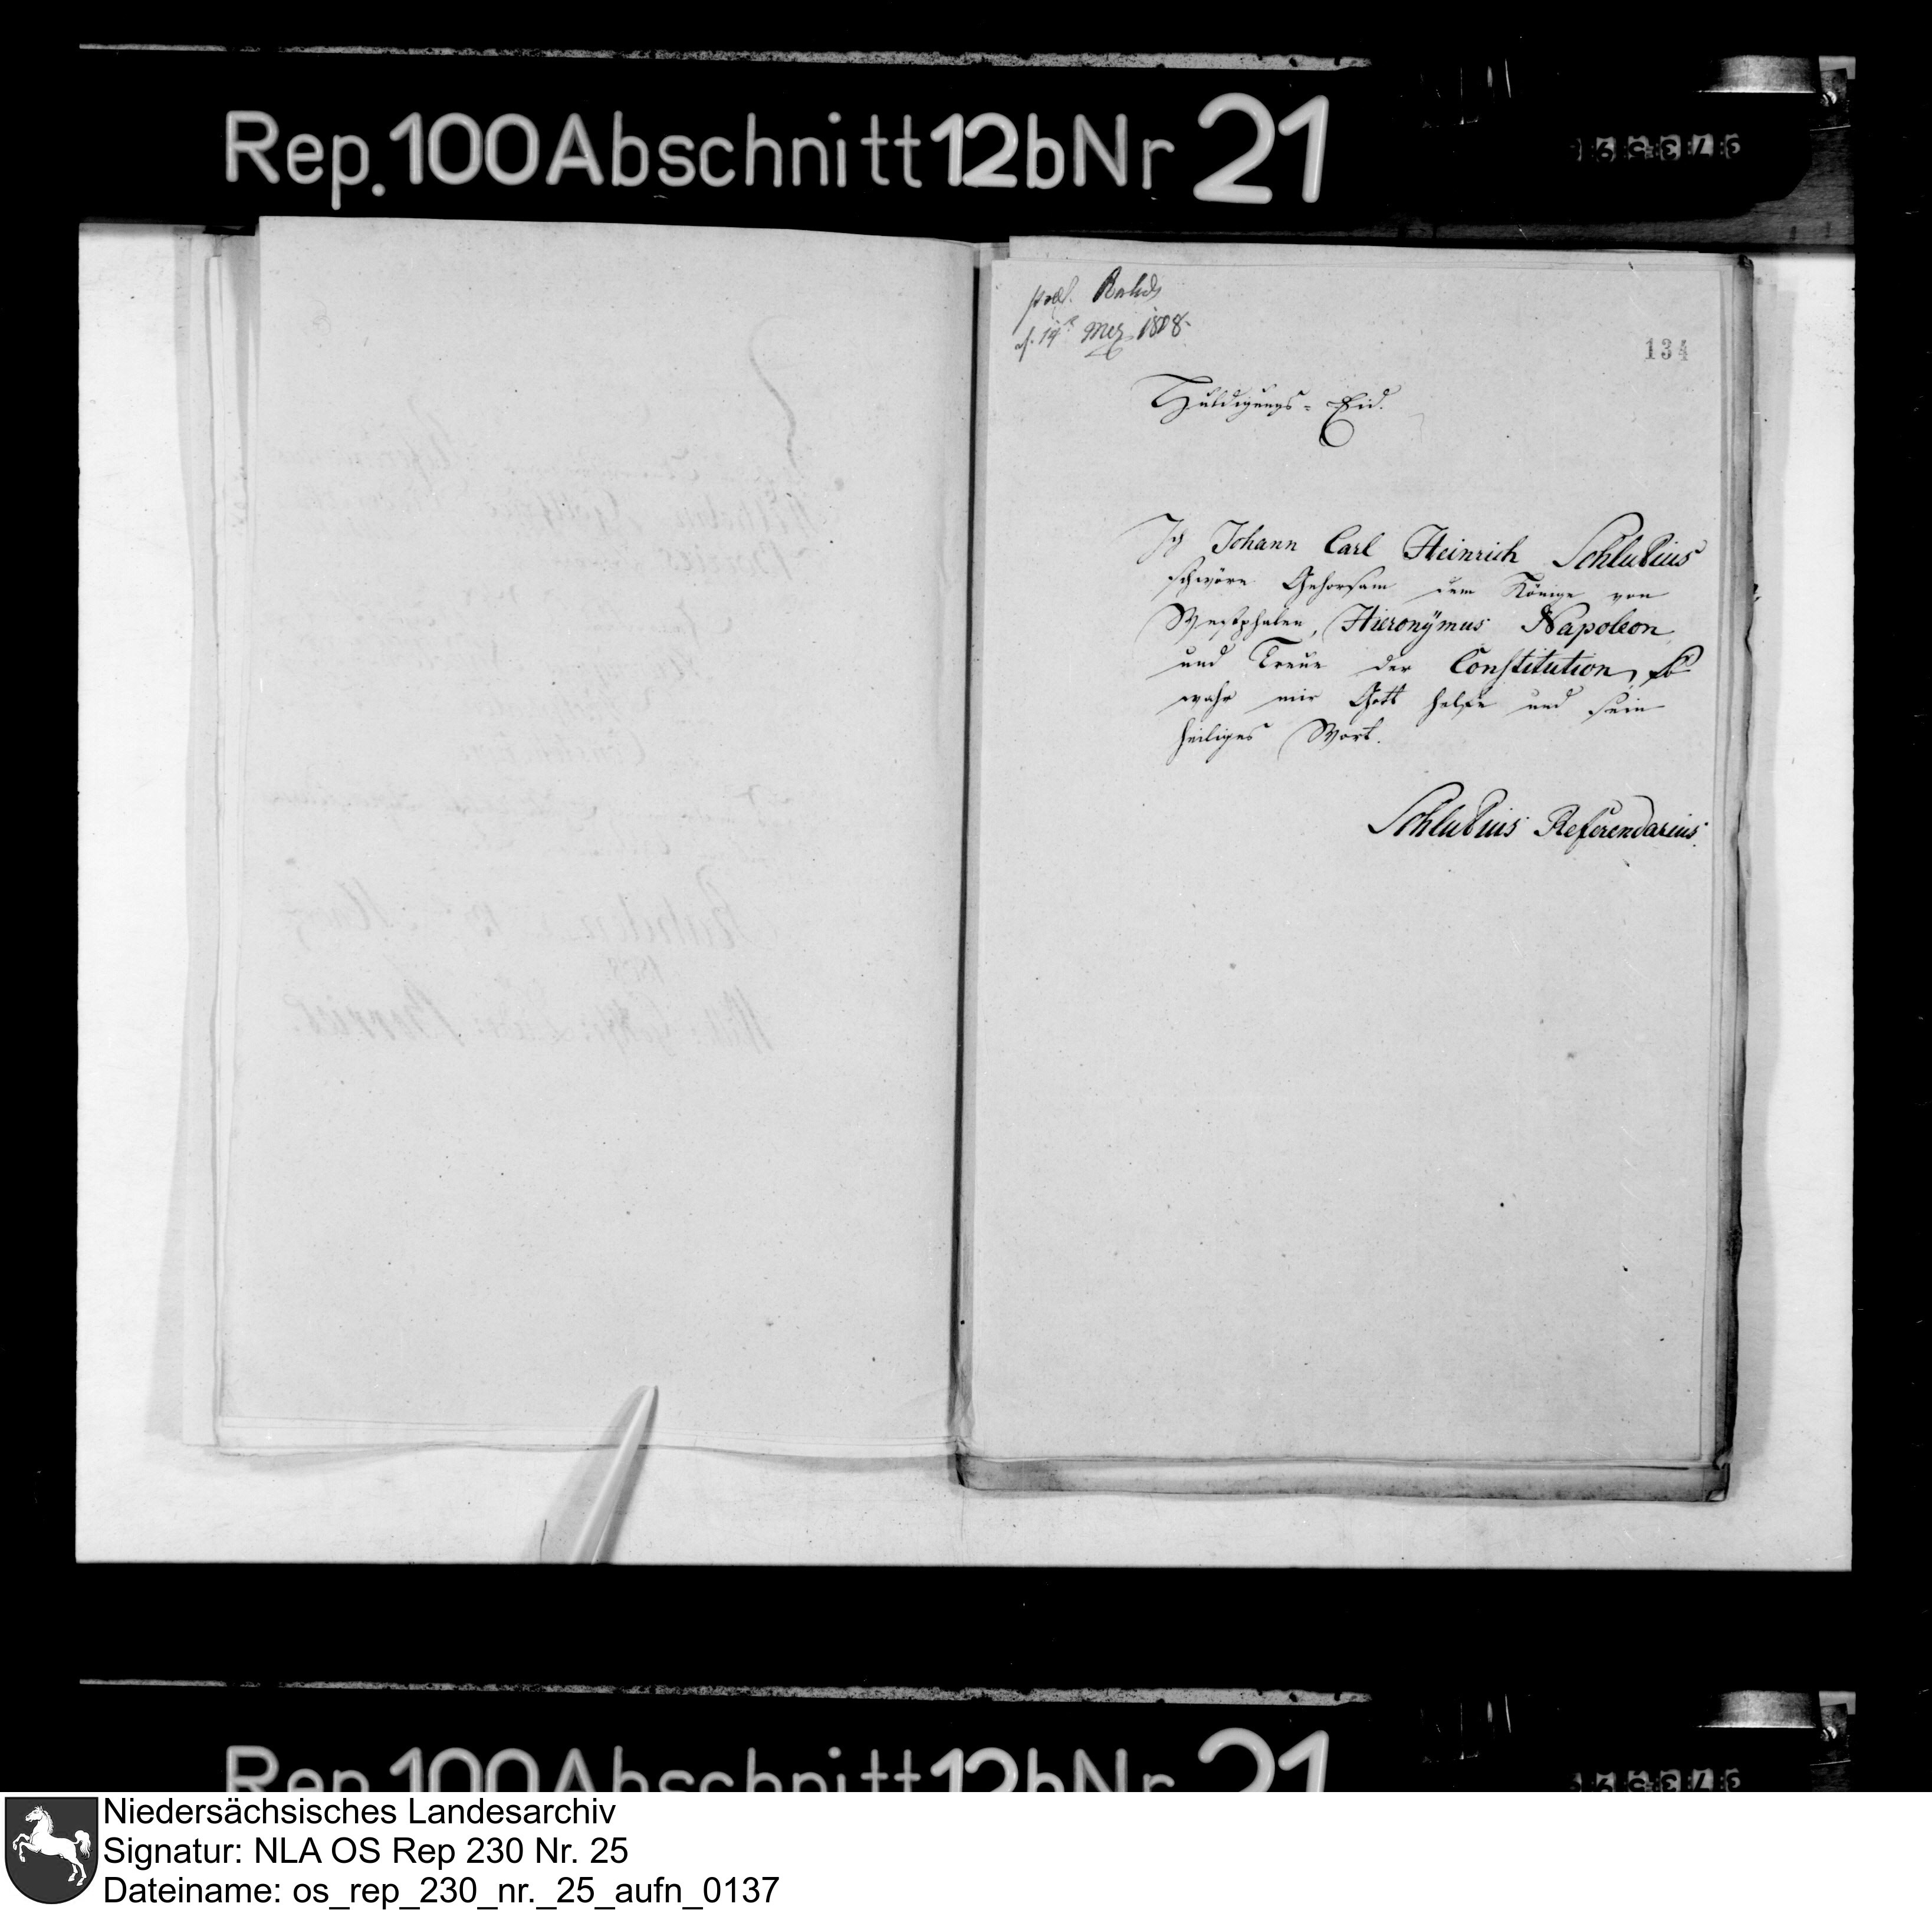 Rep. 100 Abschnitt 12b Nr 21
praes.
d. 14t Merz 1808.
134
Huldigungs-Eid.
Ich Johann Carl Heinrich Schlubius
schwöre Gehorsam dem Könige von
Westphalen, Hieronÿmus Napoleon
und Treue der Constitution, so
wahr mir Gott helfe und sein
heiliges Wort.
Schlubius Referendarius.
Rep. 100 Abschnitt 12b Nr 21
Niedersächsisches Landesarchiv
Signatur: NLA OS Rep 230 Nr. 25
Dateiname: os_rep_230_nr._25_aufn_0137